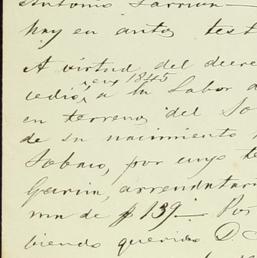 Antonio Larriva
hay en autos test
A virtud del decre
en 1845
cedió a la Labor d
en terreno del So
de su nacimiento
Sobaco, por cuyo te
Garcia, arrendatari
rria de $139 — Por
biendo querido D.